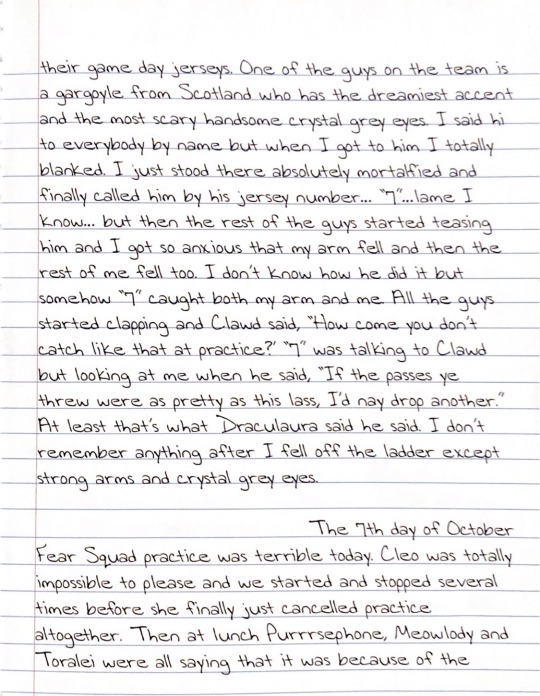 their game day jerseys. One of the guys on the team is
a gargoyle from Scotland who has the dreamiest accent
and the most scary handsome crystal grey eyes. I said hi
to everybody by name but when I got to him I totally
blanked. I just stood there absolutely mortalfied and
finally called him by his jersey number... "7"...lame I
know... but then the rest of the guys started teasing
him and I got so anxious that my arm fell and then the
rest of me fell too. I don't know how he did it but
somehow "7" caught both my arm and me. All the guys
started clapping and Clawd said, "How come you don't
catch like that at practice?' "7" was talking to Clawd
but looking at me when he said, "If the passes ye
threw were as pretty as this lass, I'd nay drop another."
At least that's what Draculaura said he said. I don't
remember anything after I fell off the ladder except
strong arms and crystal grey eyes.
The 7th day of October
Fear Squad practice was terrible today. Cleo was totally
impossible to please and we started and stopped several
times before she finally just cancelled practice
altogether. Then at lunch Purrrsephone, Meowlody and
Toralei were all saying that it was because of the